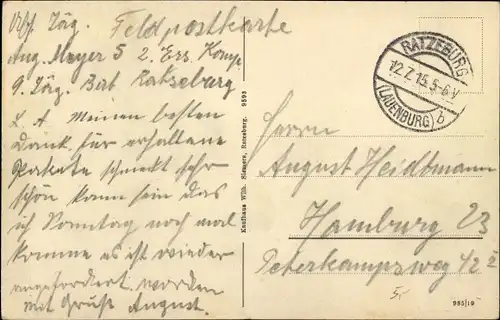 Abs. Jäg. Feldpostkarte
Aug. Meyer 5 2. Ers. Komp.
9. Jäg. Bat Ratzeburg
L. A. Meinen besten
Dank für erhaltene
Pakete schmekt sehr
schön kann sein das
ich Sonntag noch mal
komme es ist wieder
angefordert worden
Mit Gruß August.
Kaufhaus Wilh. Siemers, Ratzeburg. 9593
RATZEBURG
12.7.15. 5-6 V
(LAUENBURG) b
Herrn
August Heidtmann
Hamburg 23
Peterkampsweg 42 II
5,-
985|19